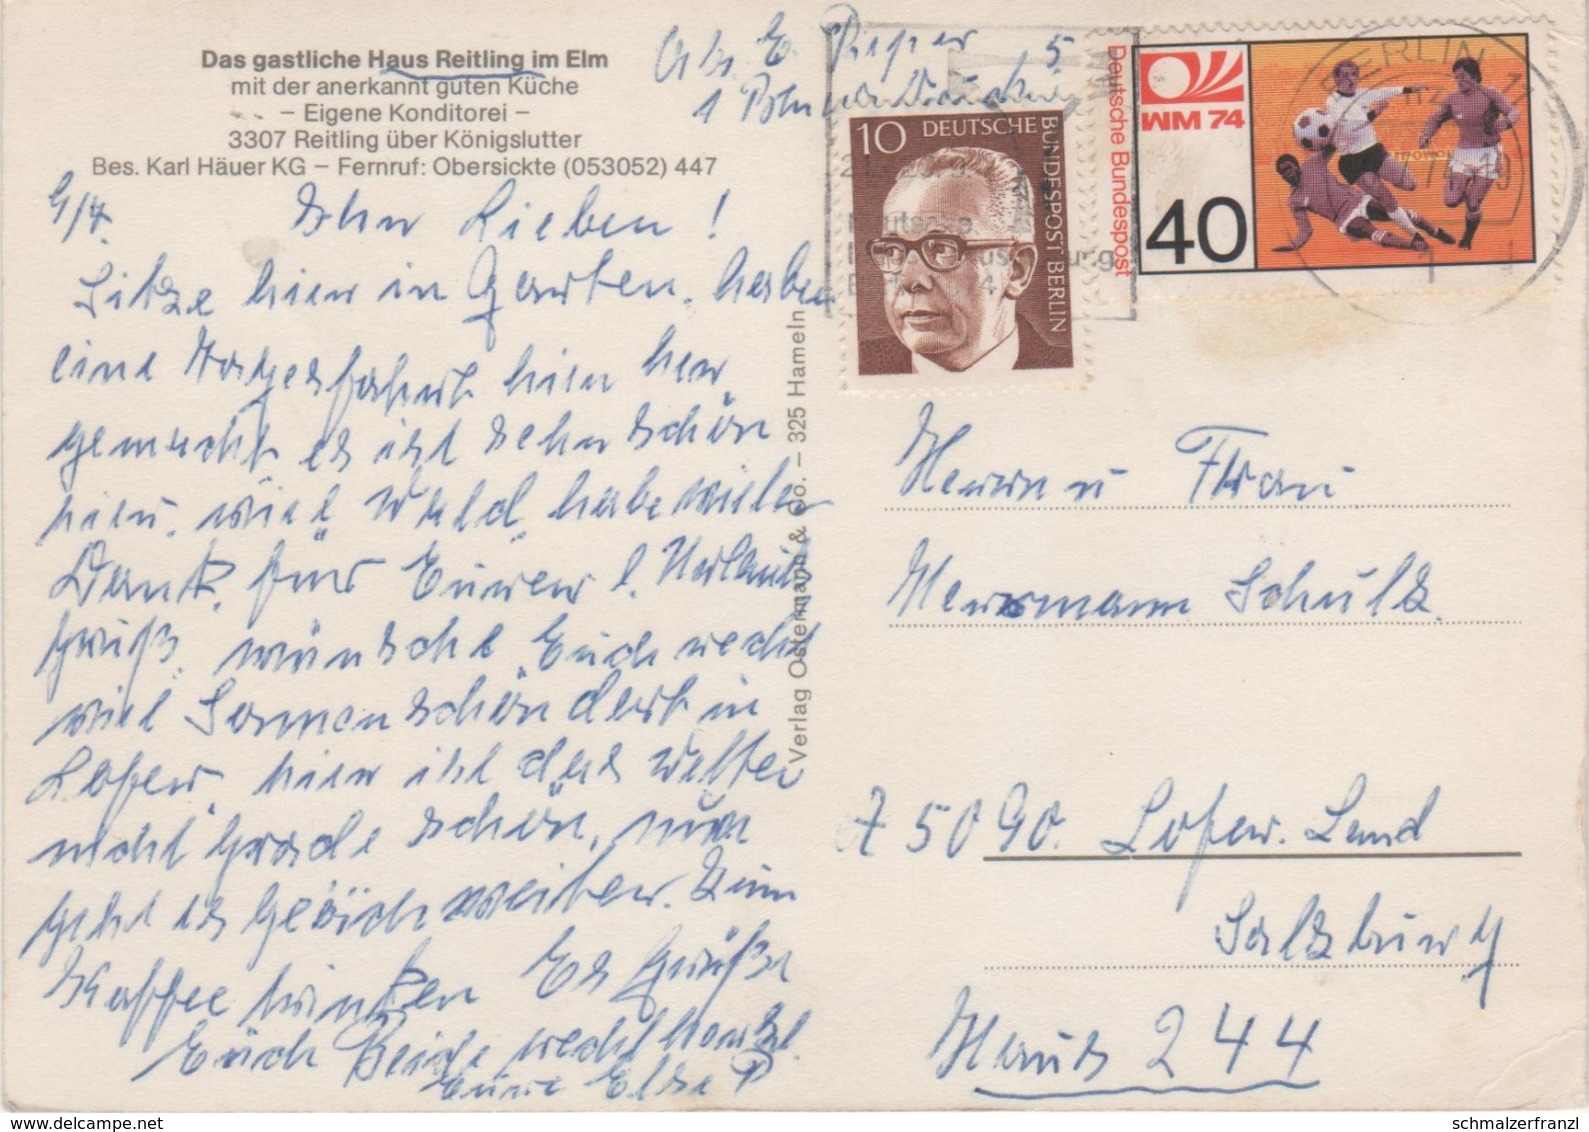 Das gastliche Haus Reitling im Elm
mit der anerkannt guten Küche
– Eigene Konditorei –
3307 Reitling über Königslutter
Bes. Karl Häuer KG – Fernruf: Obersickte (053052) 447
Abs E. Pieper
1 Berlin
5
9/7.
Ihr Lieben!
Sitze hier in Garten, haben
eine Tagesfahrt hier her
gemacht es ist sehr schön
hier, viel Wald, habe vielen
Dank, für Eurer l. Urlaubs
gruß, wünsche Euch recht
viel Sonnenschön dort in
Lofer, hier ist das Wetter
nicht grade schön, nun
geht es gleich weiter. Zum
Kaffee trinken Es Grüßt
Euch Beide recht herzl.
Eure Elsa P
Verlag Ostermann & Co. – 325 Hameln
10 DEUTSCHE BUNDESPOST BERLIN
Deutsche Bundespost
WM 74
40
BERLIN 11
Deutsche
Herrn u Frau
Herrmann Schulz.
A 5090. Lofer. Land
Salzburg
Haus 244
www.delcampe.net
schmalzerfranzl